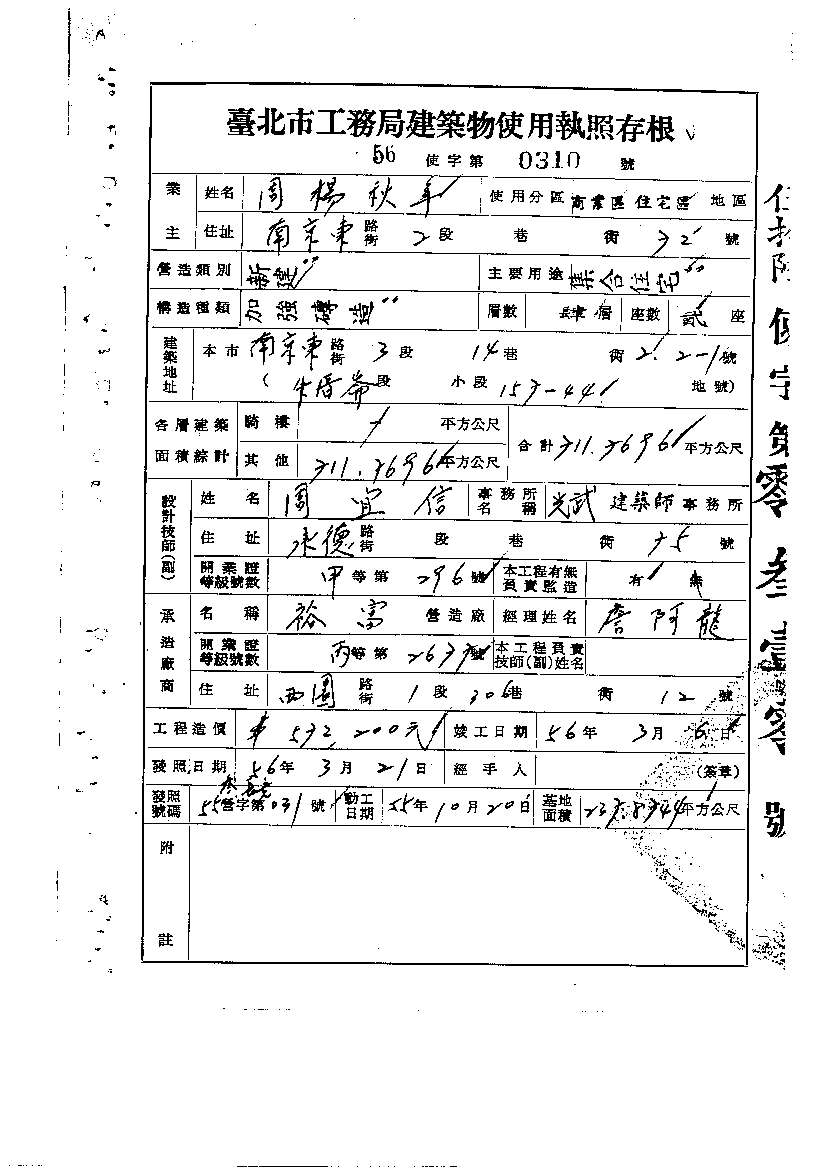 臺北市工務局建築物使用執照存根
56 使字第 0310 號
業主 姓名 周楊秋 使用分區 商業區 住宅區 地區
住址 南京東 路街 2 段 巷 街 號
營造類別 新建 主要用途 集合住宅
構造種類 加強磚造 層數 層 座數 貳 座
建築地址 本市 南京東 路街 3 段 14 巷 街 2.2-1 號
( 段 小段 地號)
各層建築面積綜計 騎樓 平方公尺 合計 平方公尺
其他 平方公尺
設計技師(副) 姓名 周宜信 事務所名稱 光武 建築師事務所
住址 永德 路街 段 巷 街 號
開業證等級號數 甲等第 296 號 本工程有無負責監造 有 無
承造廠商 名稱 裕富 營造廠 經理姓名 詹阿龍
開業證等級號數 丙等第 號 本工程負責技師(副)姓名
住址 西園 路街 1 段 306 巷 街 12 號
工程造價 200元 竣工日期 56 年 3 月 6 日
發照日期 56 年 3 月 21 日 經手人 (簽章)
發照號碼 55 營字第 031 號 動工日期 55 年 10 月 20 日 基地面積 平方公尺
附註
使字第零叁壹零號